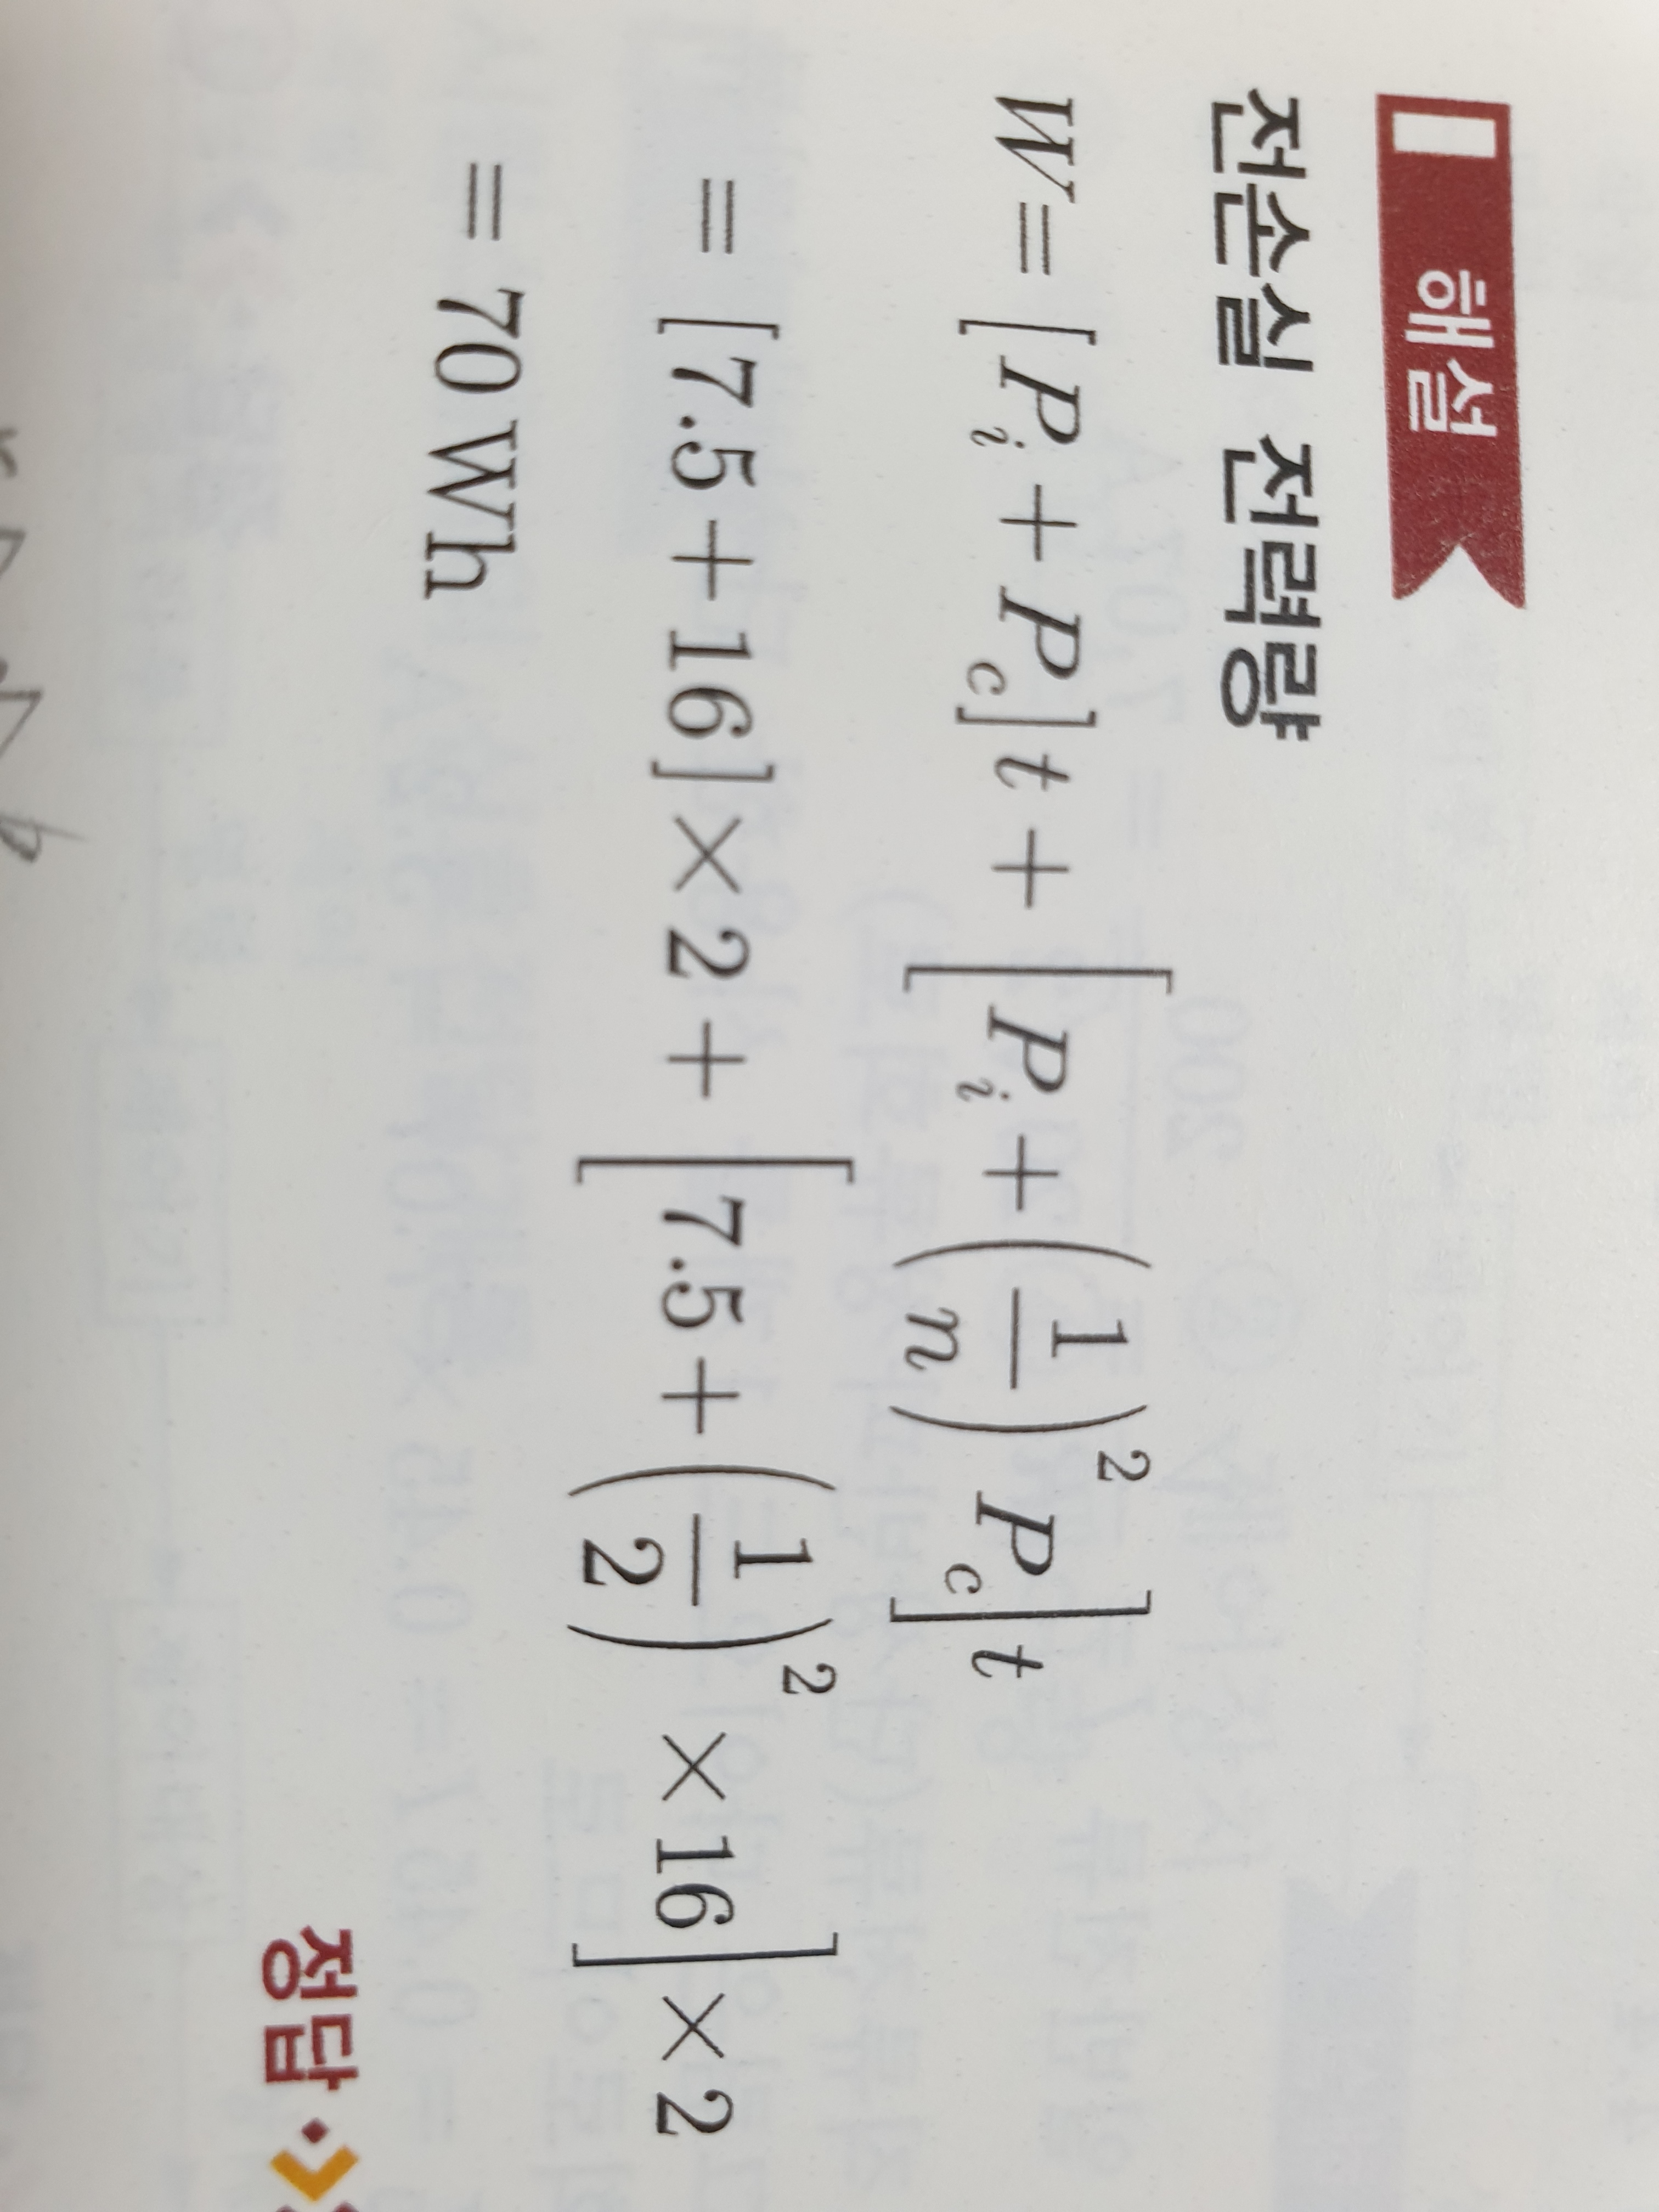 해설
전손실 전력량
W = [P_i + P_c]t + [P_i + (1/n)^2 P_c]t
= [7.5 + 16] × 2 + [7.5 + (1/2)^2 × 16] × 2
= 70 Wh
정답